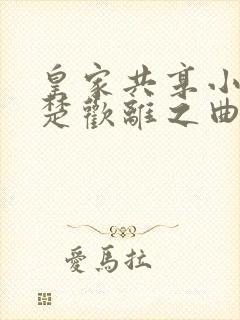 皇家共享小
楚歡離之曲
愛馬拉